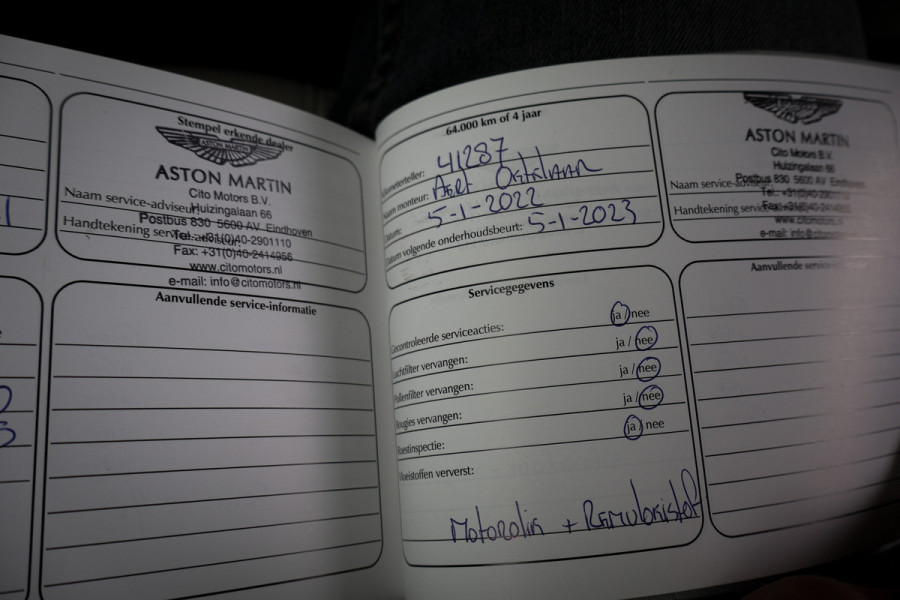 Stempel erkende dealer
ASTON MARTIN
ASTON MARTIN
Cito Motors B.V.
Naam service-adviseur:
Huizingalaan 66
Postbus 830 5600 AV Eindhoven
Handtekening service-adviseur:
Tel: +31(0)40-2901110
Fax: +31(0)40-2414956
www.citomotors.nl
e-mail: info@citomotors.nl
Aanvullende service-informatie
64.000 km of 4 jaar
41287
Naam monteur:
Datum: 5-1-2022
Datum volgende onderhoudsbeurt: 5-1-2023
Servicegegevens
Gecontroleerde serviceacties: ja / nee
Luchtfilter vervangen: ja / nee
Pollenfilter vervangen: ja / nee
Bougies vervangen: ja / nee
Roestinspectie: ja / nee
Vloeistoffen ververst:
Motorolie + Remvloeistof
ASTON MARTIN
Cito Motors B.V.
Huizingalaan 66
Postbus 830 5600 AV Eindhoven
Naam service-
Tel: +31(0)40-
Handtekening service-
www.citomotors.nl
e-mail: info@citomotors
Aanvullende service-